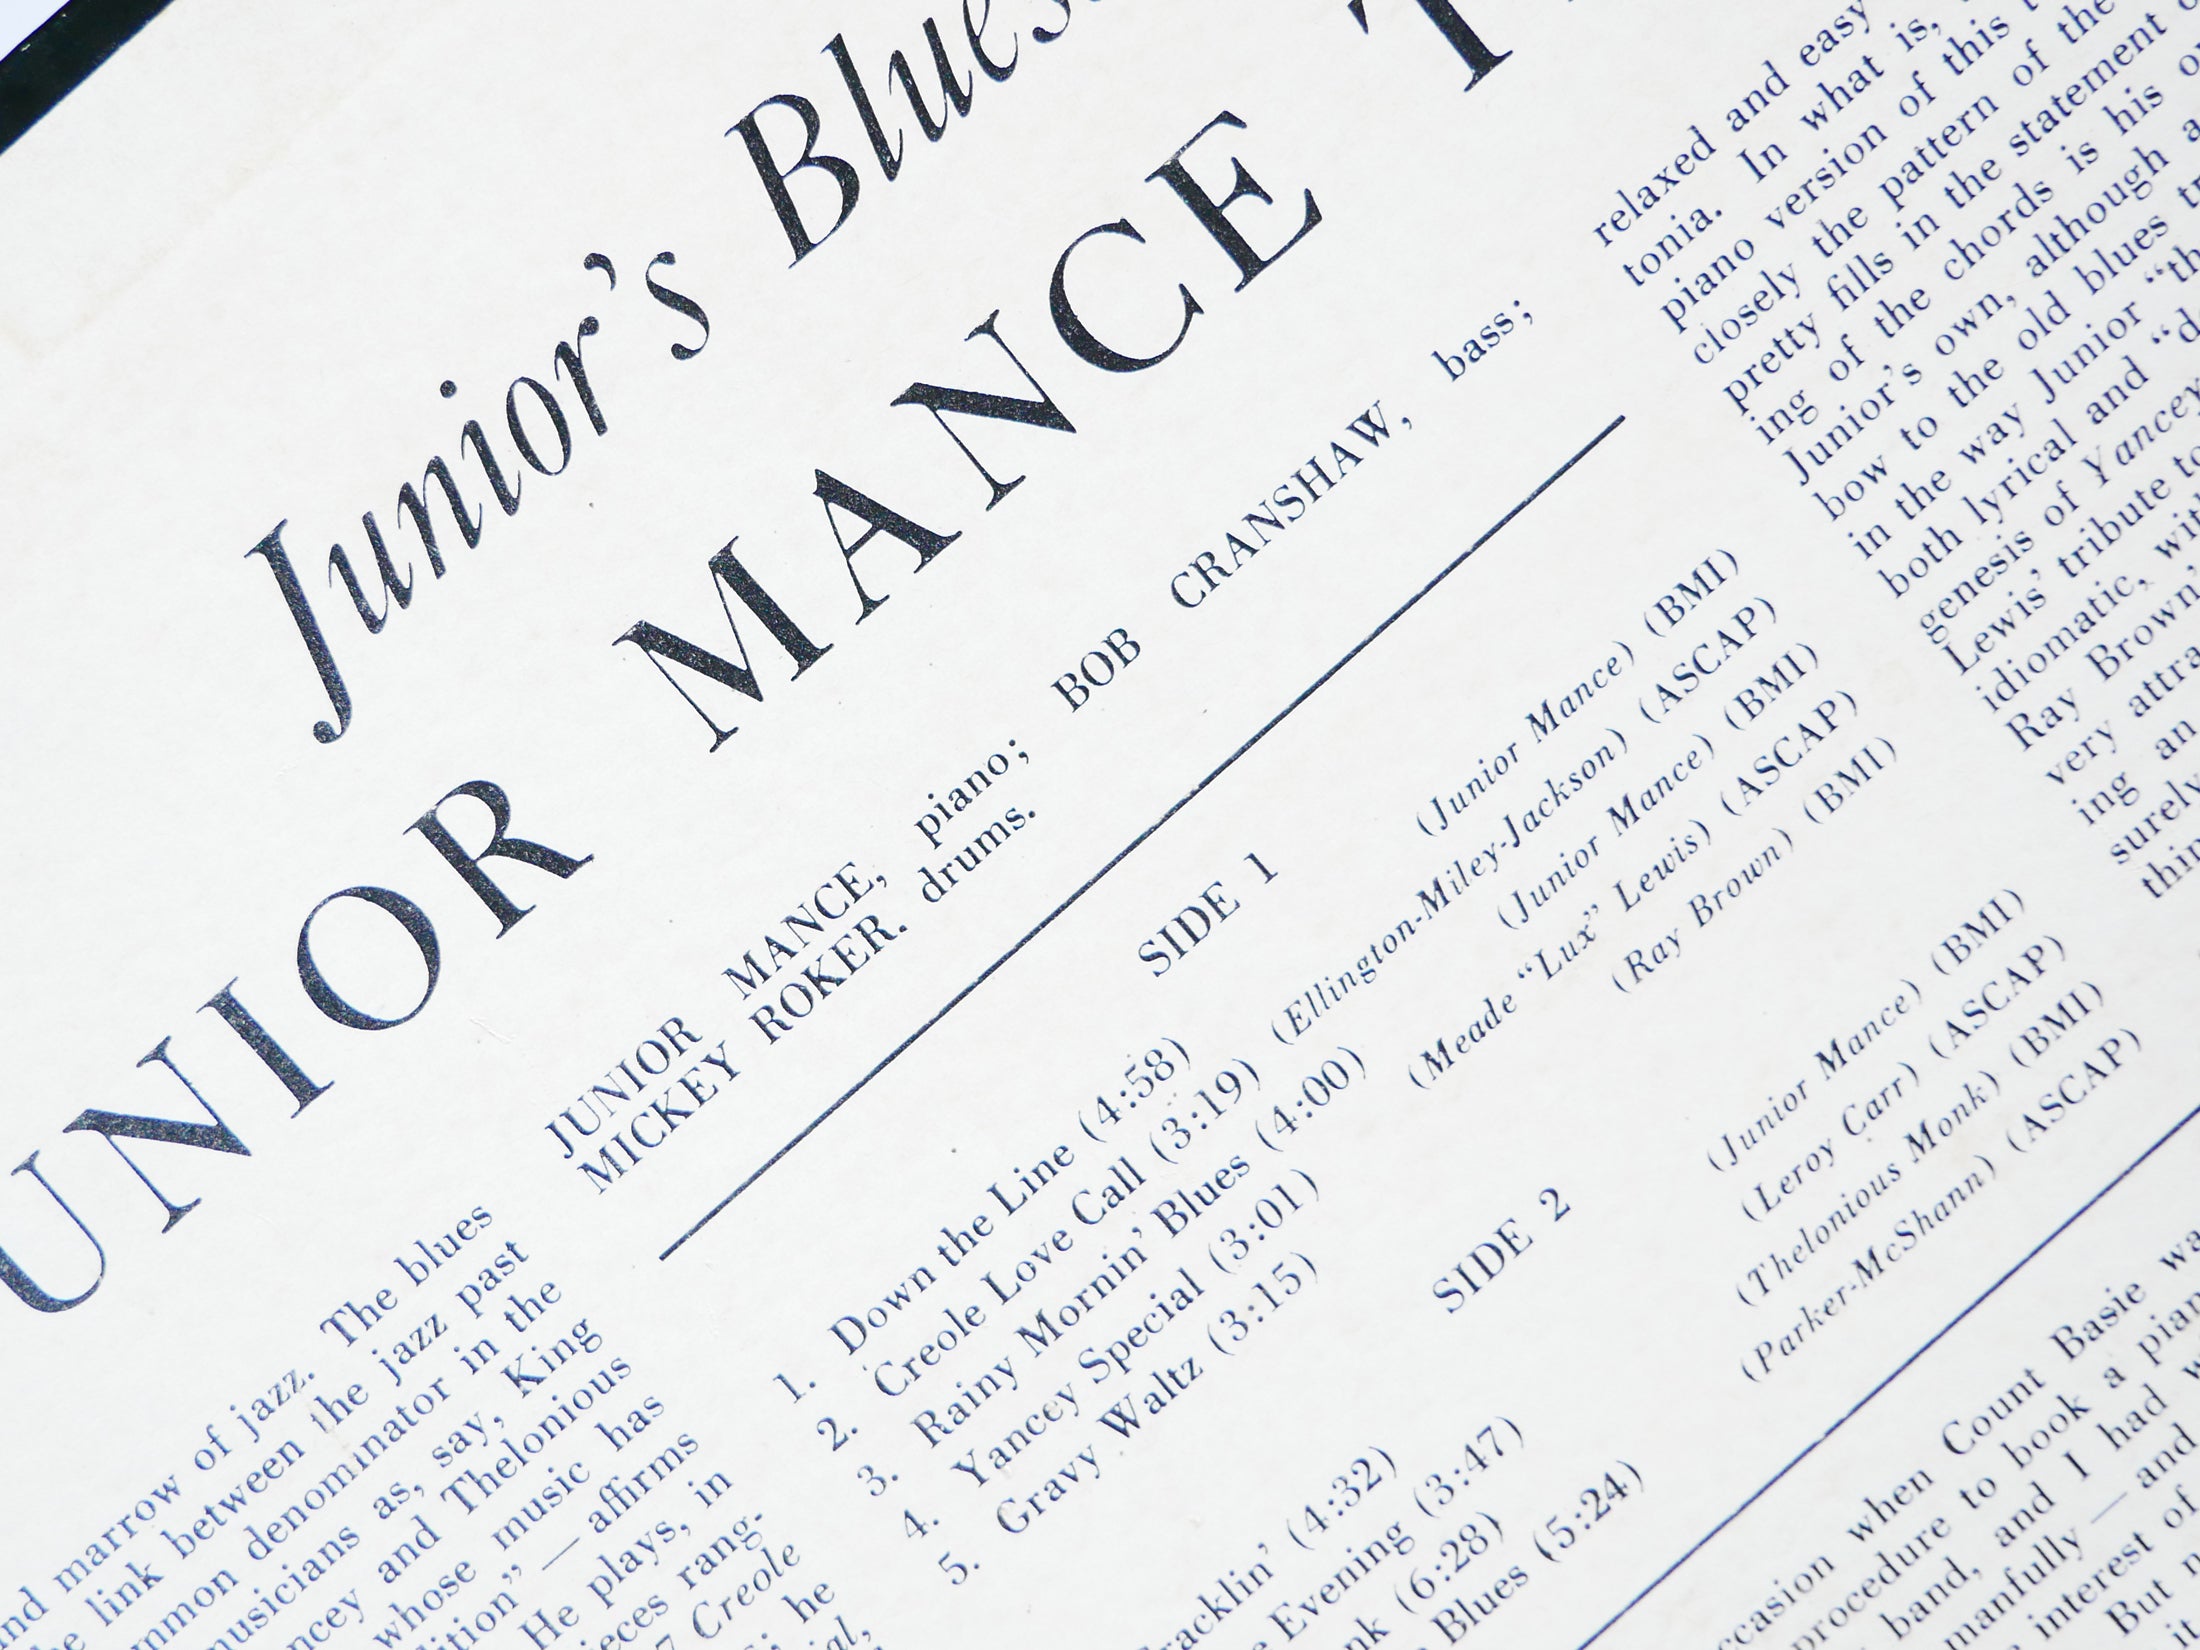 Junior's Blues
UNIOR MANCE T
JUNIOR MANCE, piano; BOB CRANSHAW, bass;
MICKEY ROKER. drums.
SIDE 1
1. Down the Line (4:58) (Junior Mance) (BMI)
2. Creole Love Call (3:19) (Ellington-Miley-Jackson) (ASCAP)
3. Rainy Mornin' Blues (4:00) (Junior Mance) (BMI)
4. Yancey Special (3:01) (Meade “Lux” Lewis) (ASCAP)
5. Gravy Waltz (3:15) (Ray Brown) (BMI)
SIDE 2
racklin' (4:32) (Junior Mance) (BMI)
e Evening (3:47) (Leroy Carr) (ASCAP)
nk (6:28) (Thelonious Monk) (BMI)
Blues (5:24) (Parker-McShann) (ASCAP)
nd marrow of jazz. The blues
e link between the jazz past
mmon denominator in the
musicians as, say, King
ncey and Thelonious
whose music has
lition” — affirms
He plays, in
ieces rang-
7 Creole
; he
ial,
relaxed and easy
tonia. In what is,
piano version of this
closely the pattern of the
pretty fills in the statement
ing of the chords is his
Junior's own, although a
bow to the old blues tr
in the way Junior “th
both lyrical and “d
genesis of Yancey
Lewis' tribute to
idiomatic, with
Ray Brown'
very attra
ing an
surely
thin
ccasion when Count Basie wa
procedure to book a pian
band, and I had w
manfully — and
interest of
But n
it